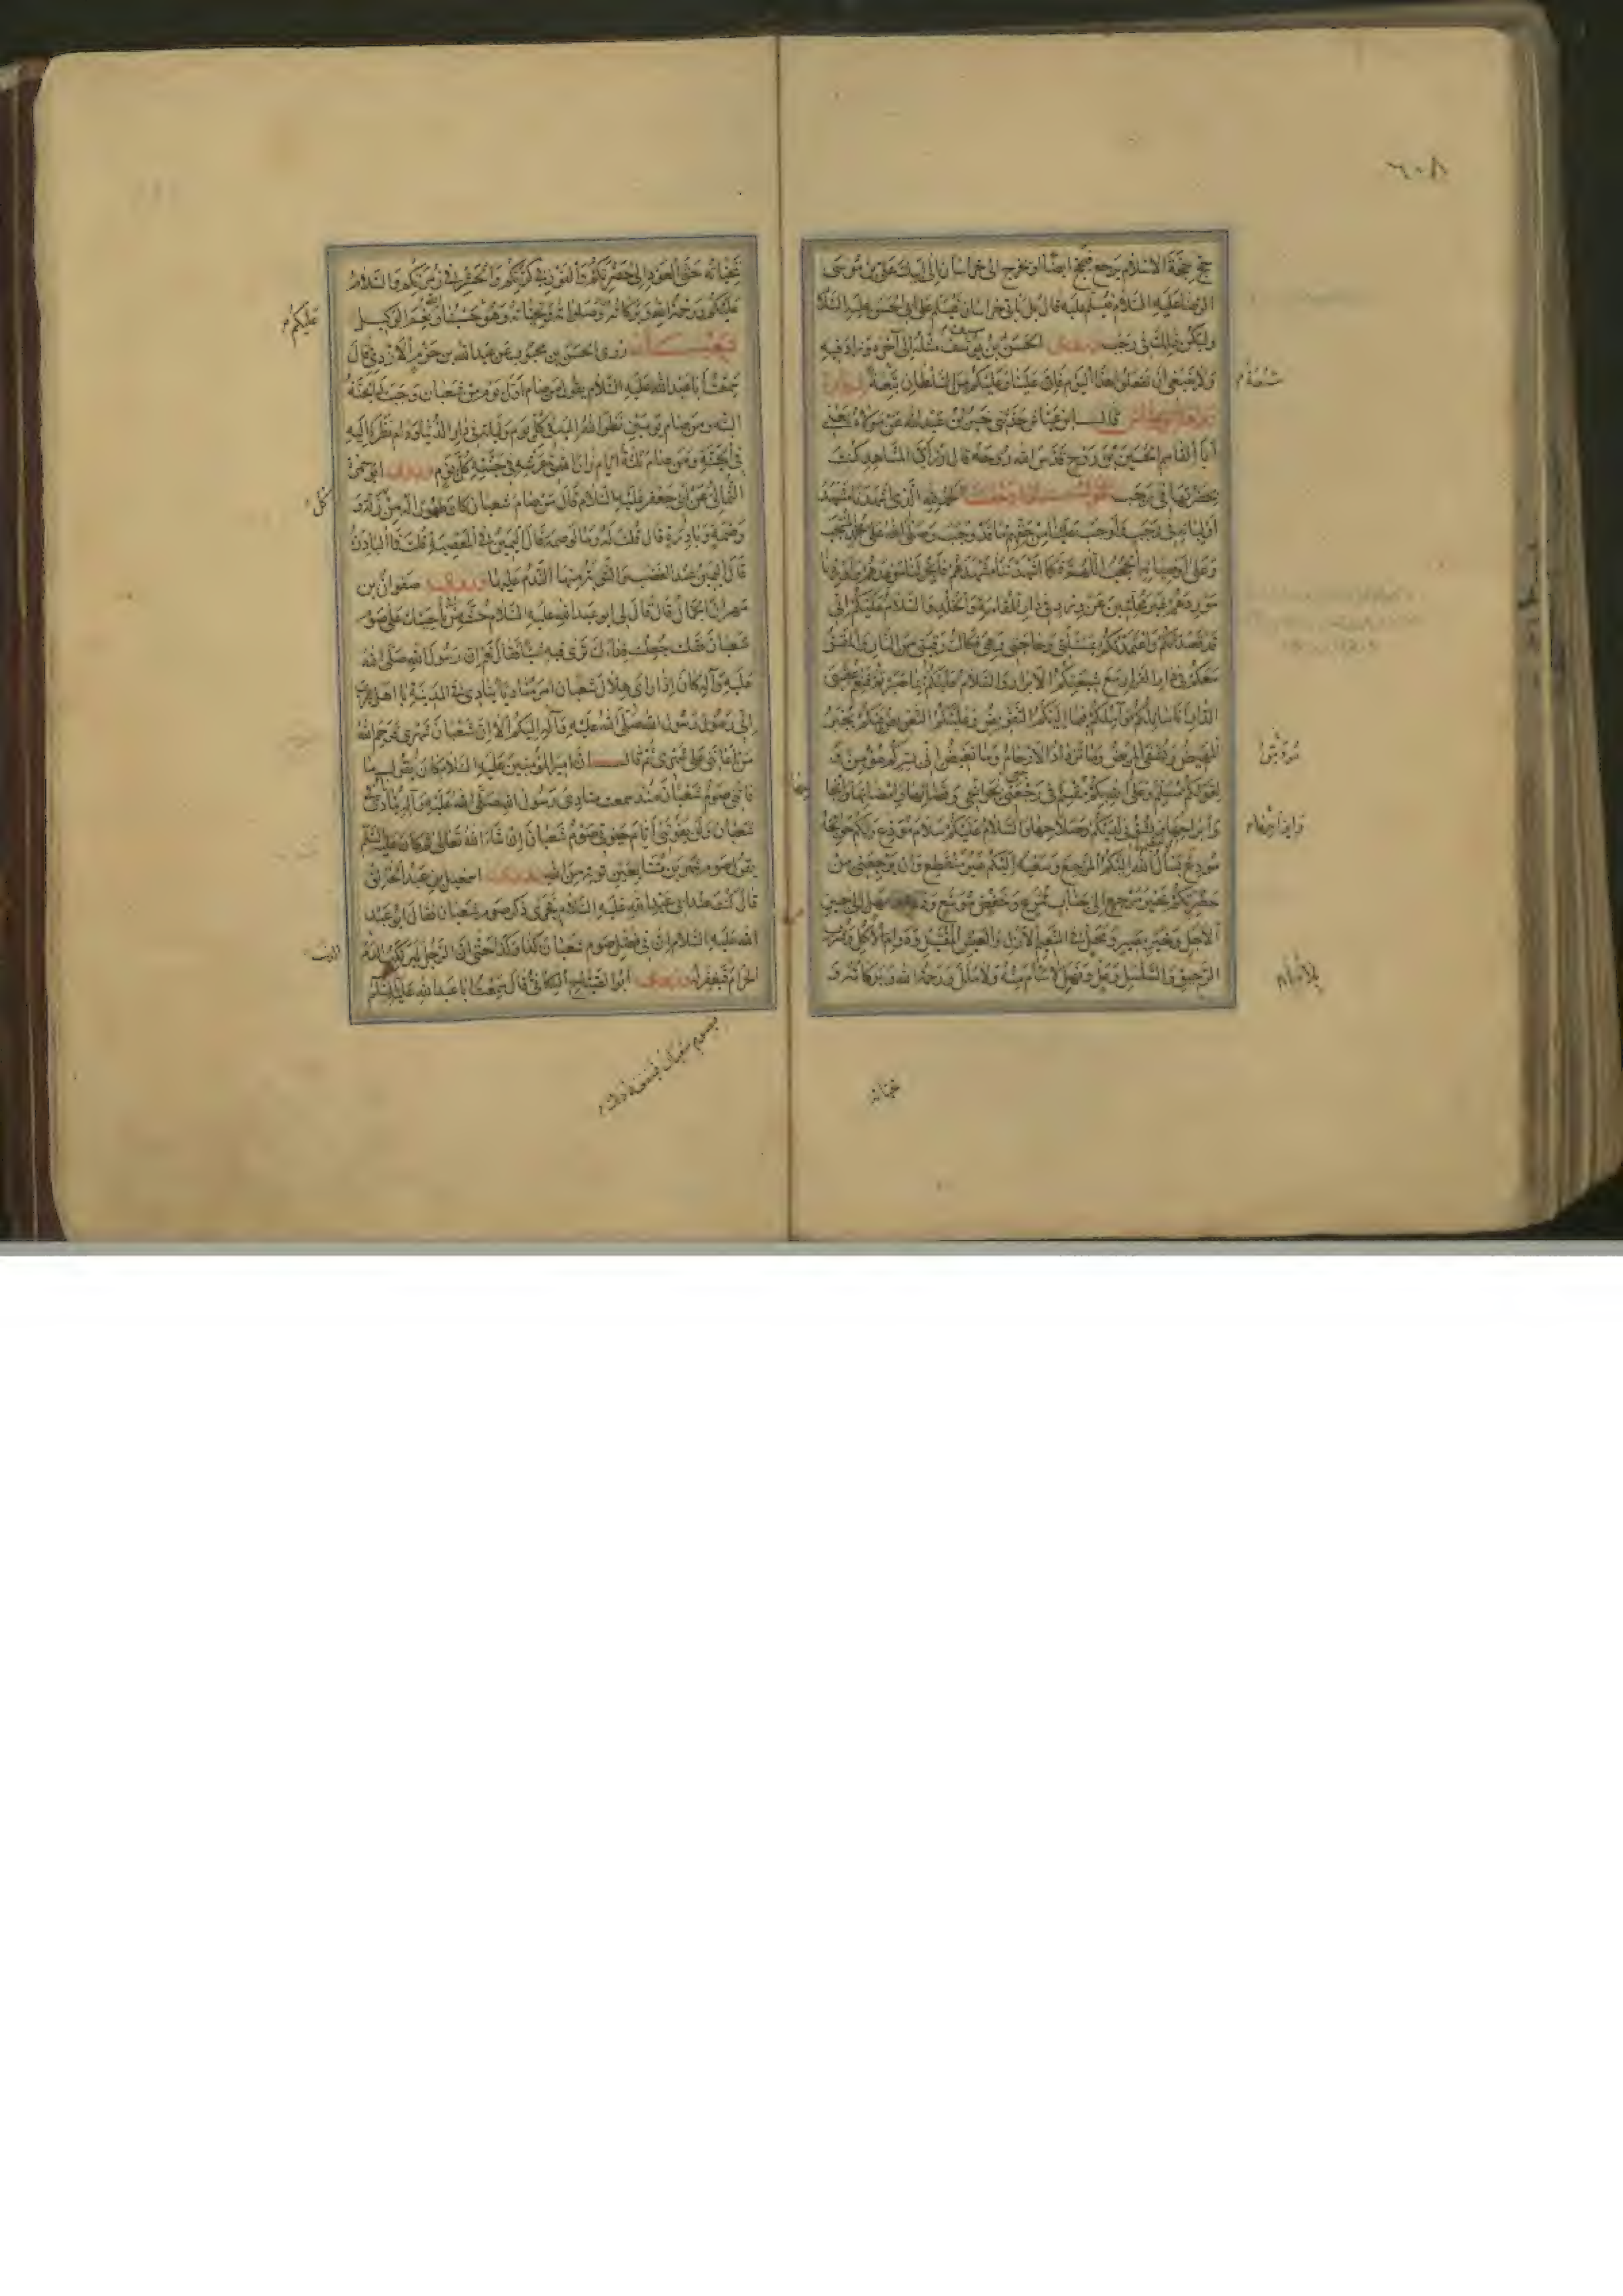 ٦٠٨
حج حجة الاسلام يرجع فيحج ايضا او يخرج الى خراسان الى ابيك علي بن موسى
الرضا عليه السلام فيسلم عليه قال بل ياتي خراسان فيسلم على ابي الحسن عليه السلام
وليكن ذلك في رجب الحسن بن مثله الى آخره وزاد فيه
ولا ينبغي ان تفعلوا هذا اليوم فان علينا وعليكم من السلطان شنعة
قال ابن عياش حدثني خير بن عبد الله عن مولاه يعني
ابا القاسم الحسين بن روح قدس الله روحه قال زر اي المشاهد كنت
بحضرتها في رجب الحمد لله الذي اشهدنا مشهد
اوليائه في رجب واوجب علينا من حقهم ما قد وجب وصلى الله على محمد المنتجب
وعلى اوصيائه الحجب اللهم فكما اشهدتنا مشهدهم فانجز لنا موعدهم واوردنا
موردهم غير محلئين عن ورد في دار المقامة والخلد والسلام عليكم اني
قد قصدتكم واعتمدتكم بمسئلتي وحاجتي وهي فكاك رقبتي من النار والمقر
معكم في دار القرار مع شيعتكم الابرار والسلام عليكم بما صبرتم فنعم عقبى
الدار انا سائلكم وآملكم فيما اليكم التفويض وعليكم التعويض فبكم يجبر
المهيض ويشفى المريض وما تزداد الارحام وما تغيض اني بسركم مؤمن و
لقولكم مسلم وعلى الله بكم مقسم في رجعتي بحوائجي وقضائها وامضائها وانجاحها
وابراحها وبشؤني لديكم وصلاحها والسلام عليكم سلام مودع ولكم حوائجه
مودع يسأل الله اليكم المرجع وسعيه اليكم غير منقطع وان يرجعني من
حضرتكم خير مرجع الى جناب ممرع وخفض موسع ومهل الى حين
الاجل وخير مصير ومحل في النعيم الازل والعيش المقتبل ودوام الاكل وشرب
الرحيق والسلسل وعل ونهل لا سأم منه ولا ملل ورحمة الله وبركاته و
شنعة
تحياته
تحياته حتى العود الى حضرتكم والفوز في كرتكم والحشر في زمرتكم والسلام
عليكم ورحمة الله وبركاته وصلواته وتحياته وهو حسبنا ونعم الوكيل
شعبان روى الحسن بن محبوب عن عبد الله بن حزم الازدي قال
سمعت ابا عبد الله عليه السلام يقول من صام اول يوم من شعبان وجبت له الجنة
البتة ومن صام يومين نظر الله اليه في كل يوم وليلة في دار الدنيا ودام نظره اليه
في الجنة ومن صام ثلثة ايام زار الله في عرشه في جنته كل يوم ابو حمزة
الثمالي عن ابي جعفر عليه السلام قال من صام شعبان كان طهورا له من كل زلة و
وصمة وبادرة قال قلت له وما الوصمة قال اليمين في المعصية قلت فما البادرة
قال اليمين عند الغضب والتوبة منها الندم عليها صفوان بن
مهران الجمال قال قال لي ابو عبد الله عليه السلام حث من ناحيتك على صوم
شعبان فقلت جعلت فداك ترى فيه شيئا فقال نعم ان رسول الله صلى الله
عليه وآله كان اذا راى هلال شعبان امر مناديا ينادي في المدينة يا اهل يثرب
اني رسول رسول الله صلى الله عليه وآله اليكم الا ان شعبان شهري فرحم الله
من اعانني على شهري ثم قال ان امير المؤمنين عليه السلام كان يقول ما
فاتني صوم شعبان منذ سمعت منادي رسول الله صلى الله عليه وآله ينادي في
شعبان ولن يفوتني ايام حيوتي صوم شعبان ان شاء الله تعالى ثم كان عليه السلام
يقول صوم شهرين متتابعين توبة من الله اسمعيل بن عبد الخالق
قال كنت عند ابي عبد الله عليه السلام فجرى ذكر صوم شعبان فقال ابو عبد
الله عليه السلام ان في فضل صوم شعبان كذا وكذا حتى ان الرجل ليرتكب الدم
الحرام فيغفر له ابو الصباح الكناني قال سمعت ابا عبد الله عليه السلام
عليكم
كل